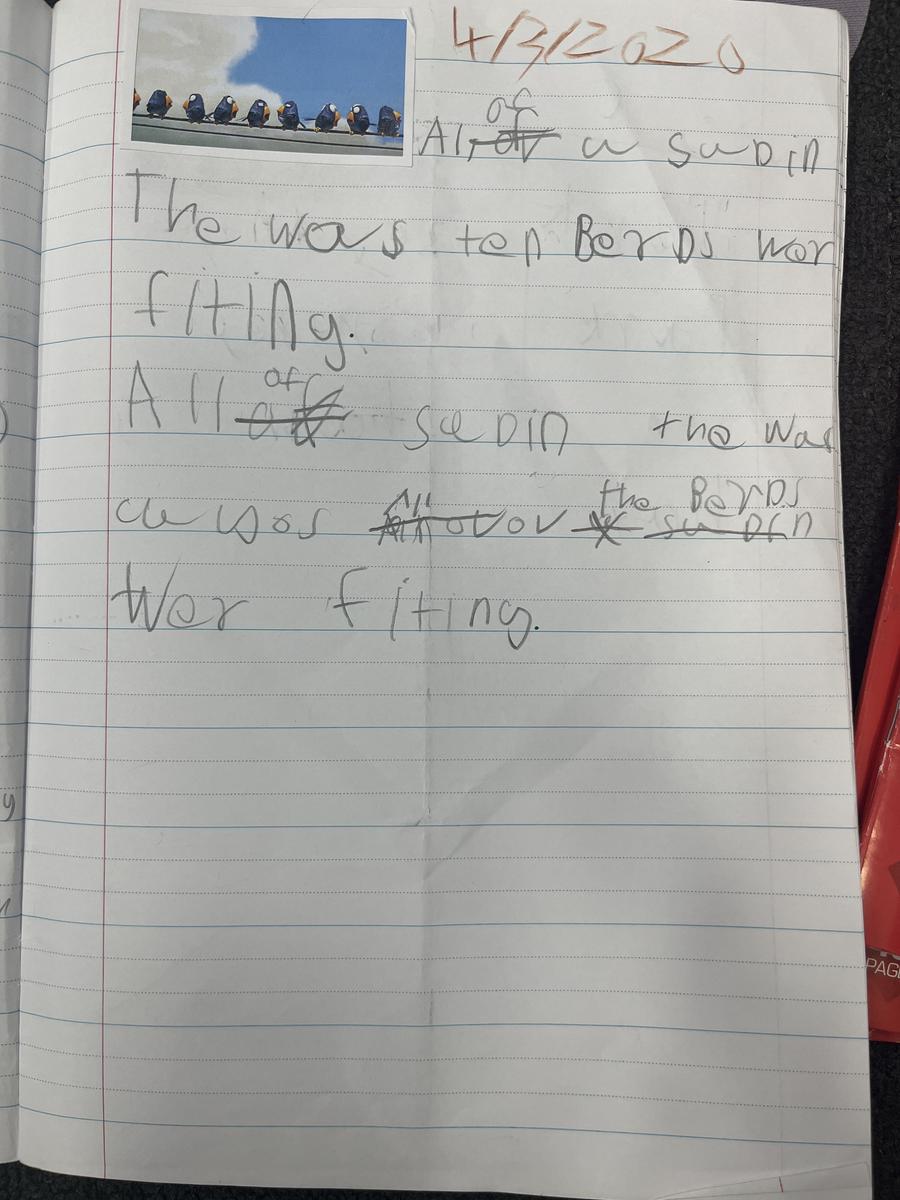 4/3/2020
of
Al, ov a suDin
The was ten BerDs wor
fiting.
of
All suDin the was
All the BerDs
a wos ov suDin
Wer fiting.
PAG